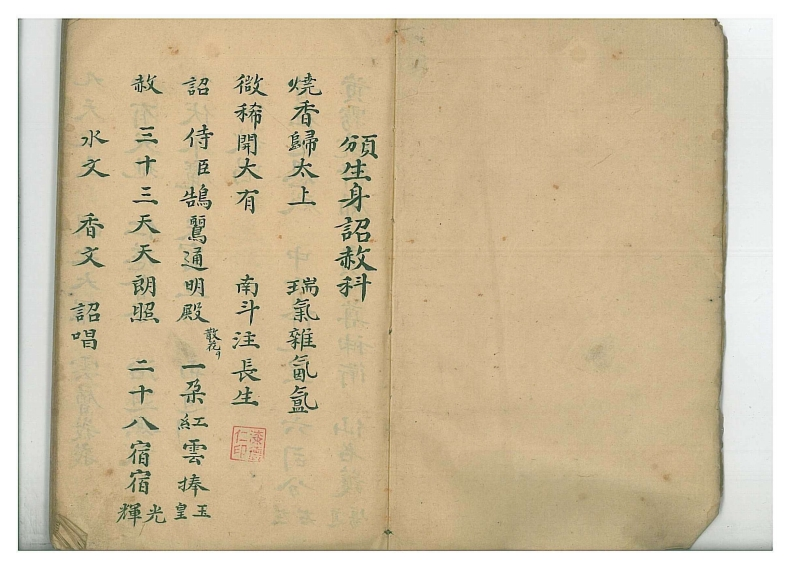 頒生身詔赦科
燒香歸太上　瑞氣雜氤氳
微稀開大有　南斗注長生
詔　侍臣鵠鷺通明殿　散花　一朶紅雲捧玉皇
赦　三十三天天朗照　二十八宿宿光輝
水文　香文　詔唱